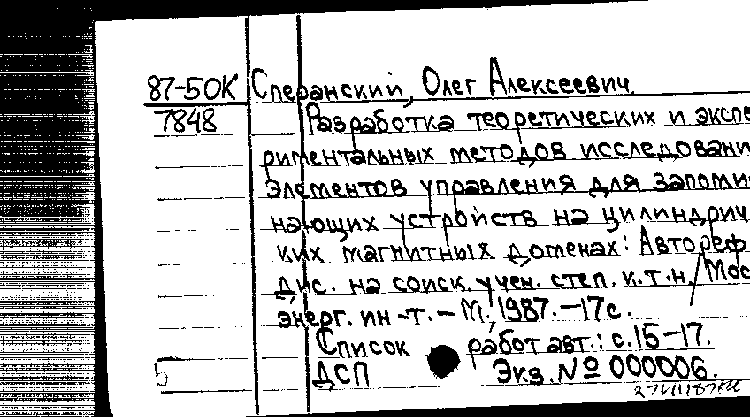 87-50К Сперанский, Олег Алексеевич.
7848 Разработка теоретических и экспе
риментальных методов исследовани
элементов управления для запоми
нающих устройств на цилиндрич
ких магнитных доменах: Автореф.
Дис. на соиск. учен. степ. к.т.н./Мос
энерг. ин-т. - М., 1987. - 17с.
Список работ авт.: с.15-17.
ДСП Экз. № 000006.
5